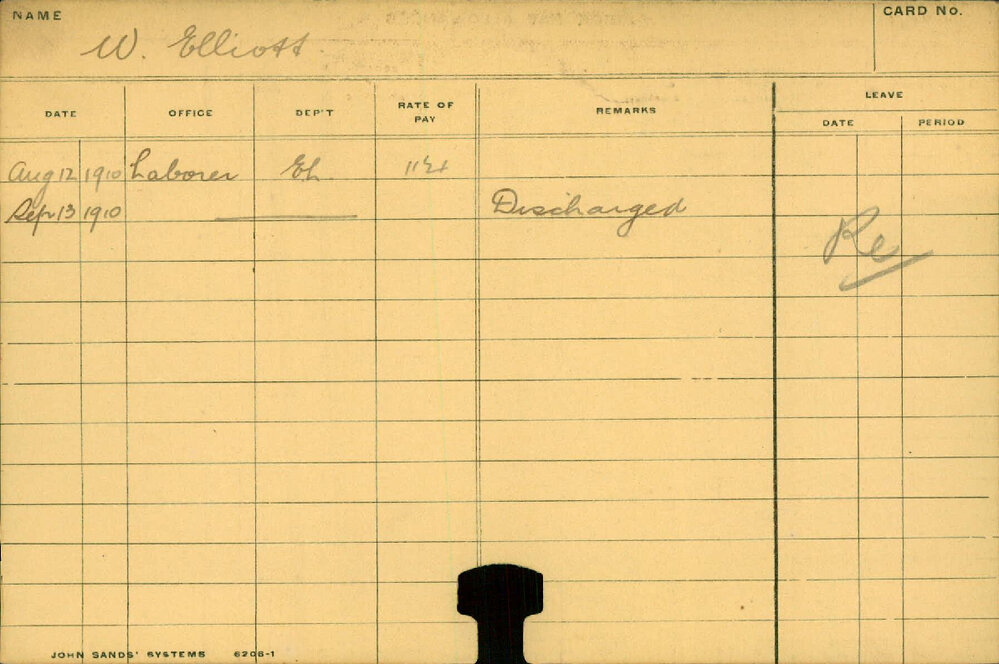 NAME
W. Elliott
CARD No.
DATE OFFICE DEP'T RATE OF PAY REMARKS LEAVE
DATE PERIOD
Aug 12 1910 Laborer
Sep 13 1910 Discharged
Re
JOHN SANDS' SYSTEMS 6206-1